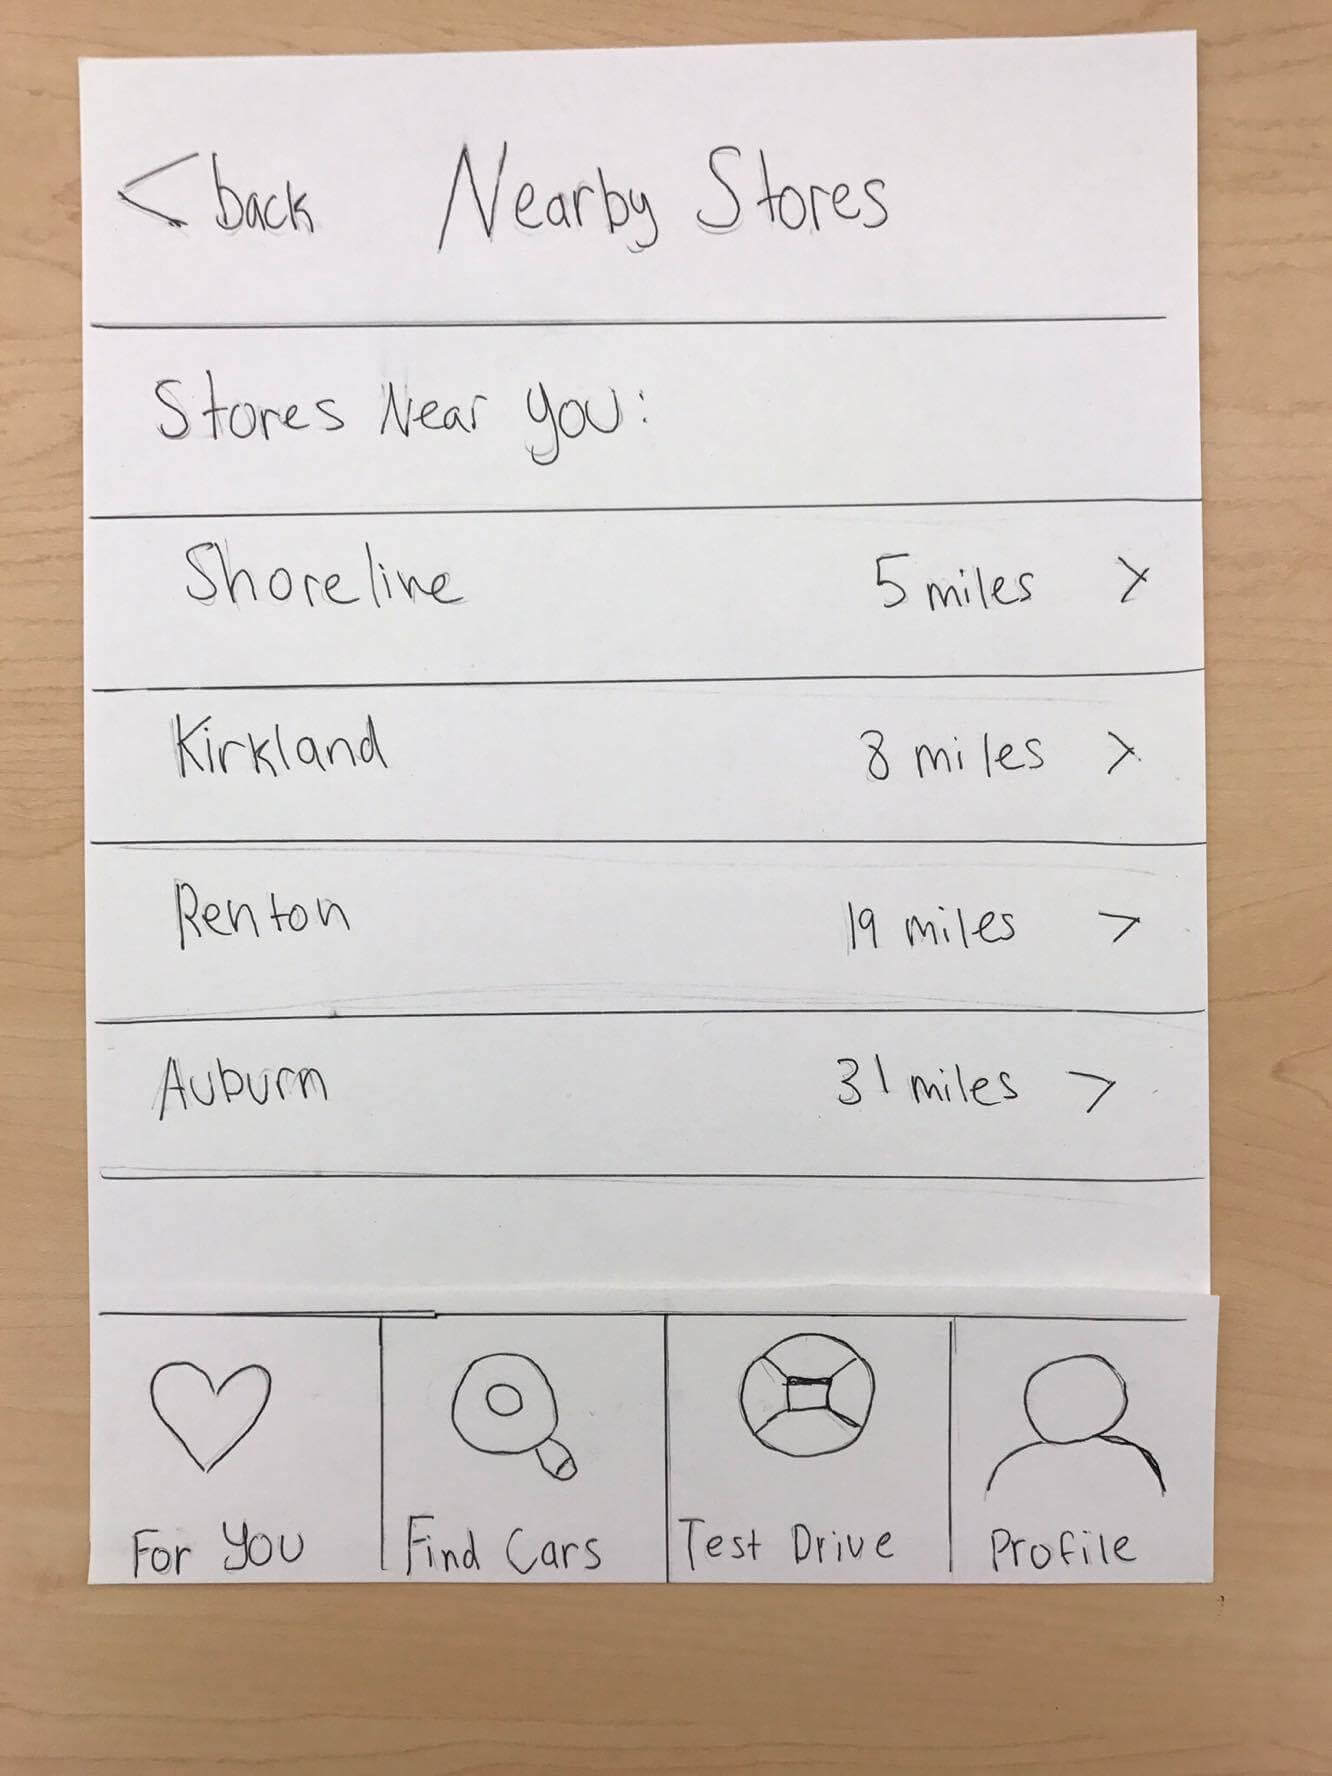 < back Nearby Stores
Stores Near you:
Shoreline 5 miles >
Kirkland 8 miles >
Renton 19 miles >
Auburn 31 miles >
For You Find Cars Test Drive Profile